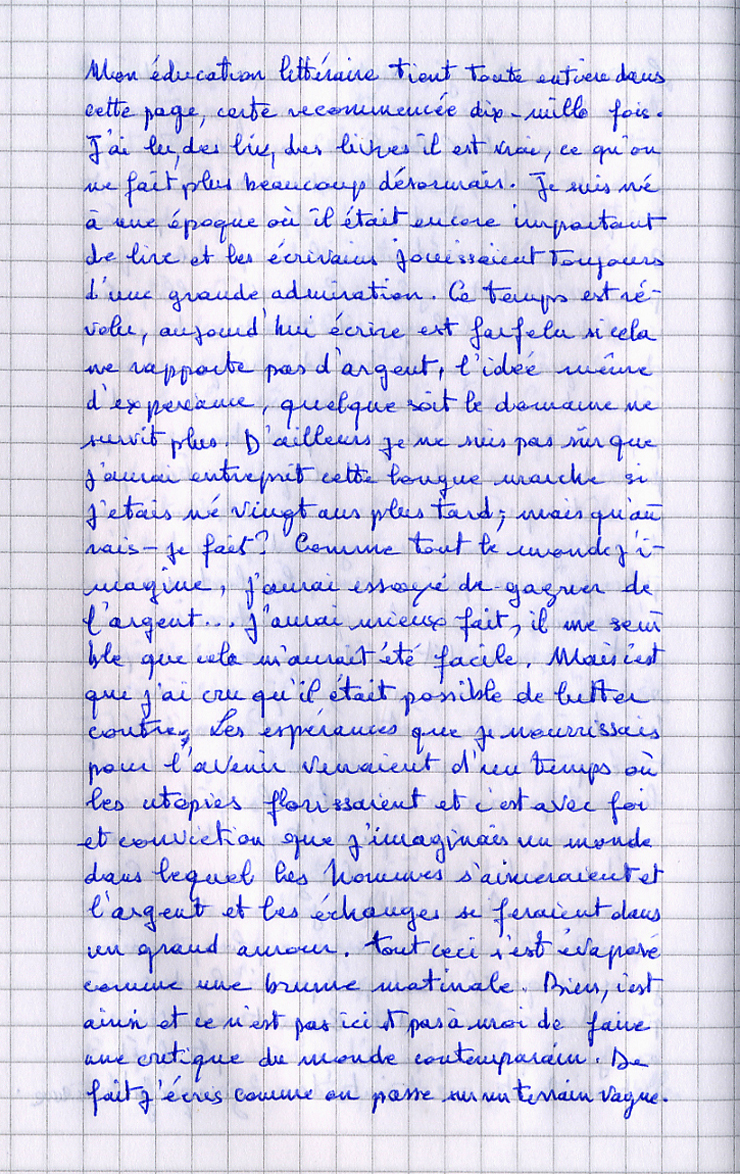 Mon éducation littéraire tient toute entière dans
cette page, certe recommencée dix-mille fois.
J'ai lu, des liv, des livres il est vrai, ce qu'on
ne fait plus beaucoup désormais. Je suis né
à une époque où il était encore important
de lire et les écrivains jouissaient toujours
d'une grande admiration. Ce temps est ré-
volu, aujourd'hui écrire est farfelu si cela
ne rapporte pas d'argent, l'idée même
d'experiance, quelque soit le domaine ne
survit plus. D'ailleurs je ne suis pas sûr que
j'aurai entreprit cette longue marche si
j'etais né vingt ans plus tard; mais qu'au
rais-je fait? Comme tout le monde j'i-
magine, j'aurai essayé de gagner de
l'argent... j'aurai mieux fait, il me sem
ble que cela m'aurait été facile. Mais c'est
que j'ai cru qu'il était possible de lutter
contre. Les espérances que je nourrissais
pour l'avenir venaient d'un temps où
les utopies florissaient et c'est avec foi
et conviction que j'imaginais un monde
dans lequel les Hommes s'aimeraient et
l'argent et les échanges se feraient dans
un grand amour. tout ceci s'est évaporé
comme une brume matinale. Bien, c'est
ainsi et ce n'est pas ici et pas à moi de faire
une critique du monde contemporain. De
fait j'écris comme on passe sur un terrain vague.